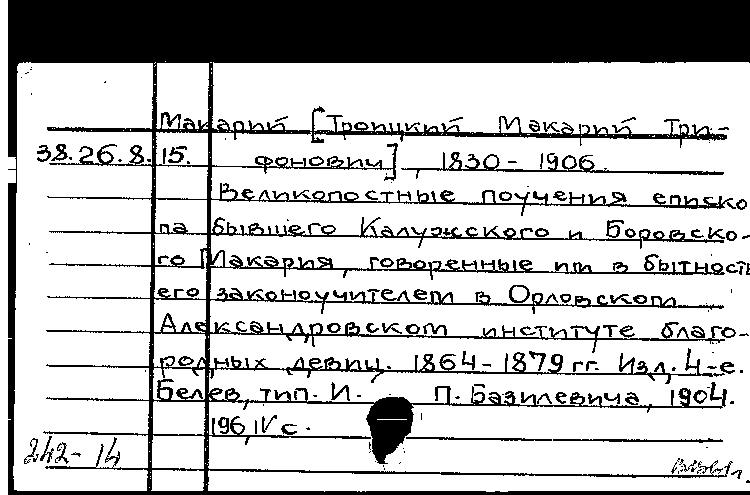 Макарий [Троицкий Макарий Три-
38.26.8.15. фонович], 1830-1906.
Великопостные поучения еписко
па бывшего Калужского и Боровско-
го Макария, говоренные им в бытность
его законоучителем в Орловском
Александровском институте благо-
родных девиц. 1864-1879 гг. Изд. 4-е.
Белев, тип. И. П. Базилевича, 1904.
196, IV с.
242-14